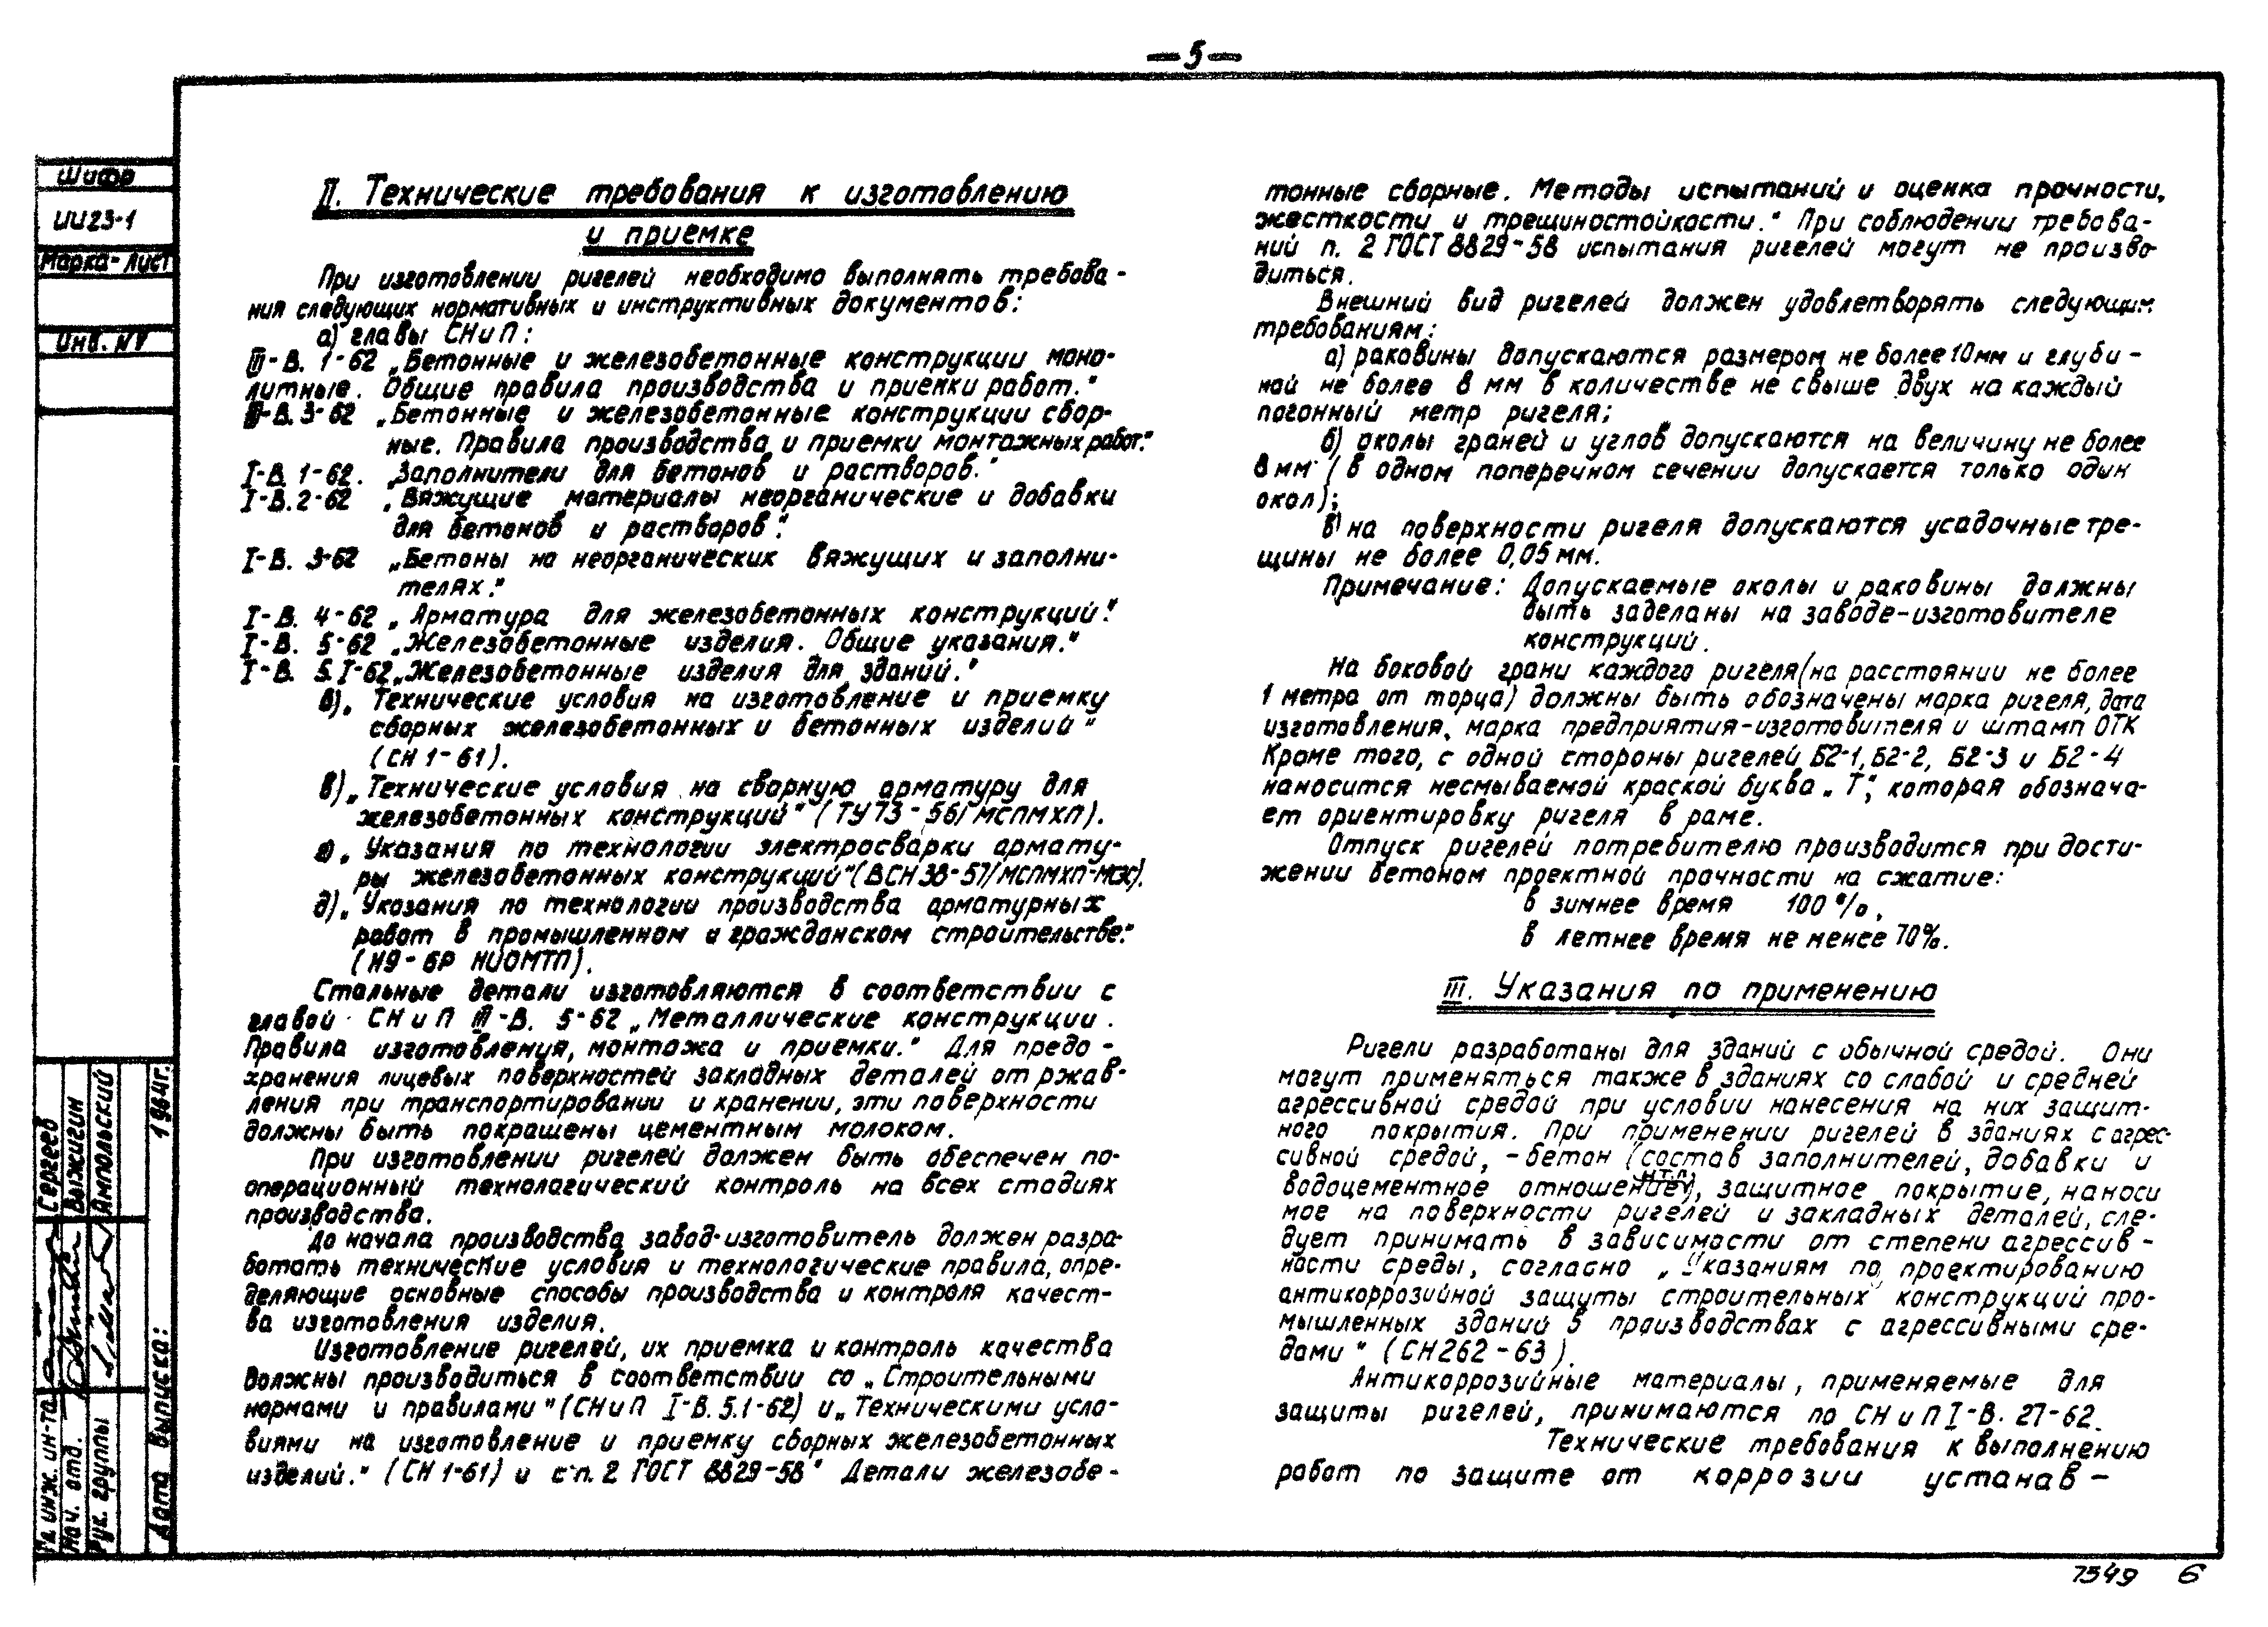 — 5 —
Шифр
ИИ23-1
Марка-лист
Инв. №
II. Технические требования к изготовлению
и приемке
При изготовлении ригелей необходимо выполнять требова-
ния следующих нормативных и инструктивных документов:
а) главы СНиП:
III-В. 1-62 „Бетонные и железобетонные конструкции моно-
литные. Общие правила производства и приемки работ."
III-В. 3-62 „Бетонные и железобетонные конструкции сбор-
ные. Правила производства и приемки монтажных работ."
I-В 1-62. „Заполнители для бетонов и растворов."
I-В.2-62 „Вяжущие материалы неорганические и добавки
для бетонов и растворов".
I-В. 3-62 „Бетоны на неорганических вяжущих и заполни-
телях."
I-В. 4-62 „Арматура для железобетонных конструкций."
I-В. 5-62 „Железобетонные изделия. Общие указания."
I-В. 5.I-62 „Железобетонные изделия для зданий."
б) „Технические условия на изготовление и приемку
сборных железобетонных и бетонных изделий"
(СН 1-61).
в) „Технические условия на сварную арматуру для
железобетонных конструкций" (ТУ 73-56/МСПМХП).
г) „Указания по технологии электросварки армату-
ры железобетонных конструкций" (ВСН 38-57/МСПМХП-МСЭС).
д) „Указания по технологии производства арматурных
работ в промышленном и гражданском строительстве."
(И9-6Р НИОМТП).
Стальные детали изготовляются в соответствии с
главой СНиП III-В. 5-62 „Металлические конструкции.
Правила изготовления, монтажа и приемки." Для предо-
хранения лицевых поверхностей закладных деталей от ржав-
ления при транспортировании и хранении, эти поверхности
должны быть покрашены цементным молоком.
При изготовлении ригелей должен быть обеспечен по-
операционный технологический контроль на всех стадиях
производства.
До начала производства завод-изготовитель должен разра-
ботать технические условия и технологические правила, опре-
деляющие основные способы производства и контроля качест-
ва изготовления изделия.
Изготовление ригелей, их приемка и контроль качества
должны производиться в соответствии со „Строительными
нормами и правилами" (СНиП I-В. 5.1-62) и „Техническими усло-
виями на изготовление и приемку сборных железобетонных
изделий." (СН 1-61) и с п. 2 ГОСТ 8829-58 " Детали железобе-
тонные сборные. Методы испытаний и оценка прочности,
жесткости и трещиностойкости." При соблюдении требова-
ний п. 2 ГОСТ 8829-58 испытания ригелей могут не произво-
диться.
Внешний вид ригелей должен удовлетворять следующим
требованиям:
а) раковины допускаются размером не более 10мм и глуби-
ной не более 8 мм в количестве не свыше двух на каждый
погонный метр ригеля;
б) околы граней и углов допускаются на величину не более
8 мм (в одном поперечном сечении допускается только один
окол);
в) на поверхности ригеля допускаются усадочные тре-
щины не более 0,05 мм.
Примечание: Допускаемые околы и раковины должны
быть заделаны на заводе-изготовителе
конструкций.
На боковой грани каждого ригеля (на расстоянии не более
1 метра от торца) должны быть обозначены марка ригеля, дата
изготовления, марка предприятия-изготовителя и штамп ОТК
Кроме того, с одной стороны ригелей Б2-1, Б2-2, Б2-3 и Б2-4
наносится несмываемой краской буква „Т", которая обознача-
ет ориентировку ригеля в раме.
Отпуск ригелей потребителю производится при дости-
жении бетоном проектной прочности на сжатие:
в зимнее время 100 %,
в летнее время не менее 70%.
III. Указания по применению
Ригели разработаны для зданий с обычной средой. Они
могут применяться также в зданиях со слабой и средней
агрессивной средой при условии нанесения на них защит-
ного покрытия. При применении ригелей в зданиях с агрес-
сивной средой, - бетон (состав заполнителей, добавки и
водоцементное отношение и т.п.), защитное покрытие, наноси
мое на поверхности ригелей и закладных деталей, сле-
дует принимать в зависимости от степени агрессив-
ности среды, согласно „Указаниям по проектированию
антикоррозийной защиты строительных конструкций про-
мышленных зданий в производствах с агрессивными сре-
дами" (СН262-63).
Антикоррозийные материалы, применяемые для
защиты ригелей, принимаются по СНиП I-В. 27-62.
Технические требования к выполнению
работ по защите от коррозии устанав-
Гл. инж. ин-та Сергеев
Нач. отд. Выжигин
Рук. группы Ямпольский
Дата выпуска: 1964г.
7549 6